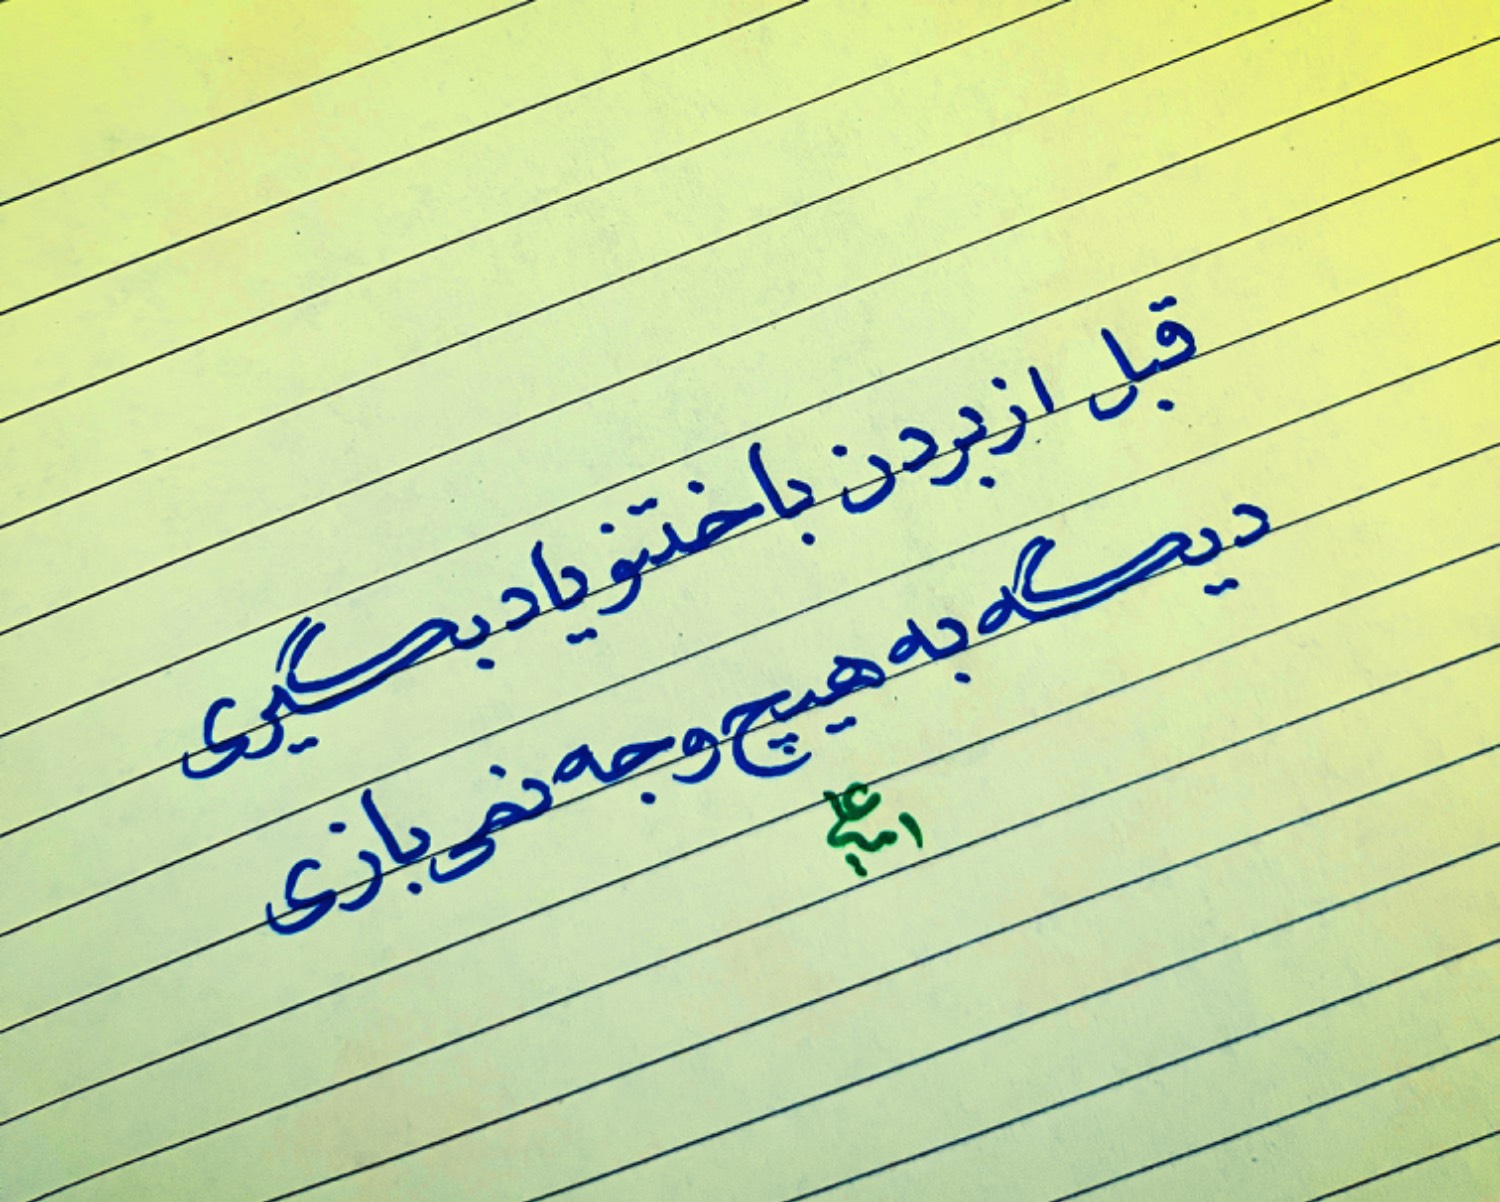 قبل از بردن باختنو یاد بگیری
دیگه به هیچ وجه نمی بازی